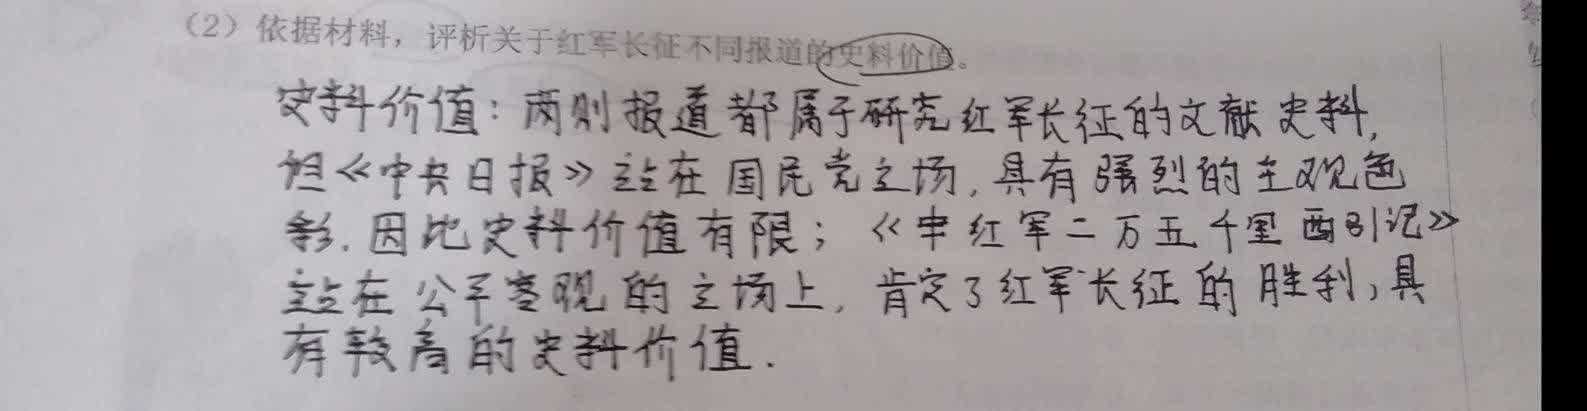 （2）依据材料，评析关于红军长征不同报道的史料价值。
史料价值：两则报道都属于研究红军长征的文献史料，
但《中央日报》站在国民党立场，具有强烈的主观色
彩，因此史料价值有限；《中红军二万五千里西引记》
站在公平客观的立场上，肯定了红军长征的胜利，具
有较高的史料价值．